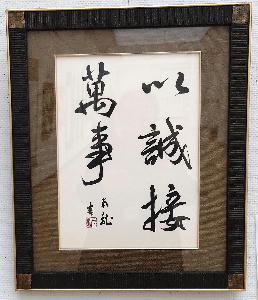 以誠接
萬事